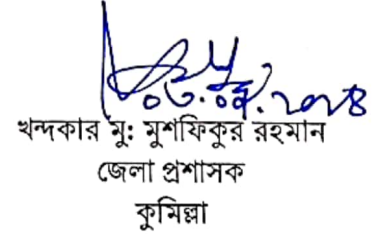 ০৩.০৪.২০২৪
খন্দকার মু: মুশফিকুর রহমান
জেলা প্রশাসক
কুমিল্লা